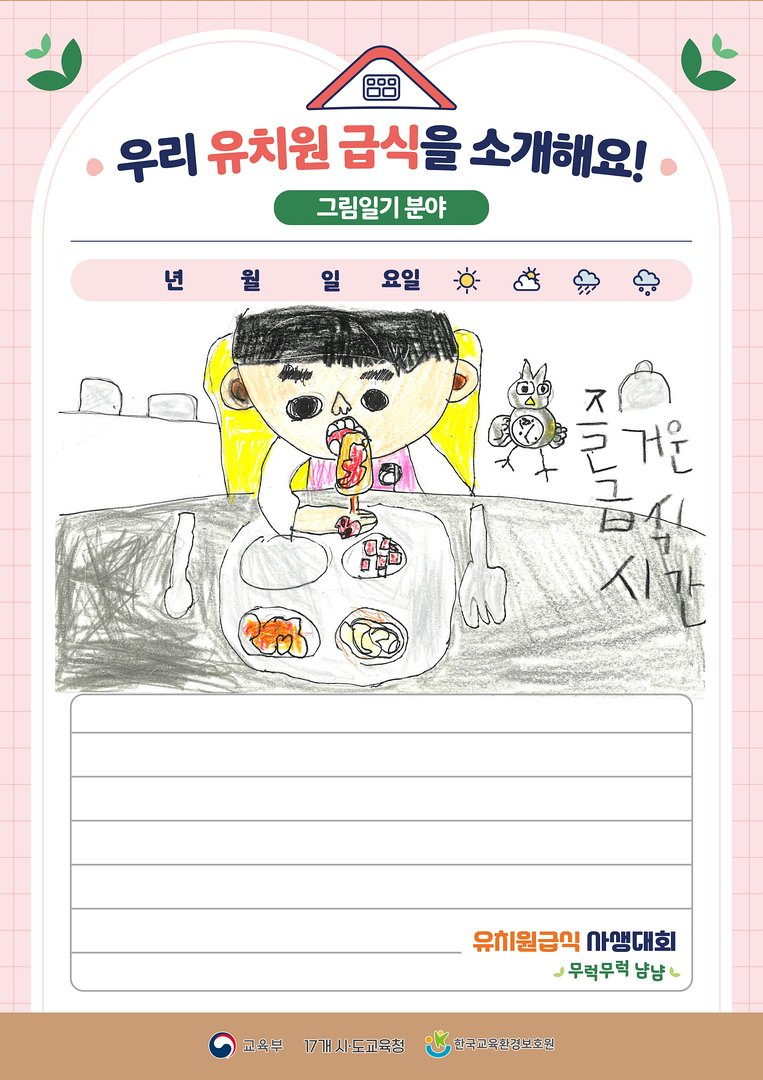 우리 유치원 급식을 소개해요!
그림일기 분야
년 월 일 요일
즐거운
급식
시간
유치원급식 사생대회
무럭무럭 냠냠
교육부 17개 시·도교육청 한국교육환경보호원